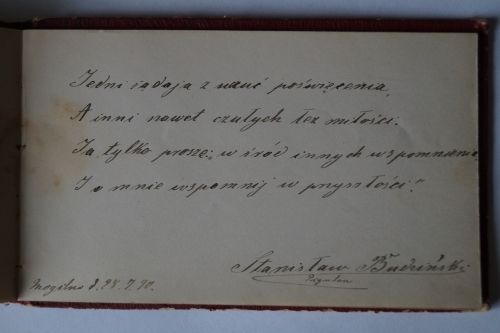 Jedni żądają z uczuć poświęcenia,
A inni nawet czułych łez miłości.
Ja tylko proszę, w śród innych wspomnienia,
I o mnie wspomnij w przyszłości!
Stanisław Budziński
Mogilno d.